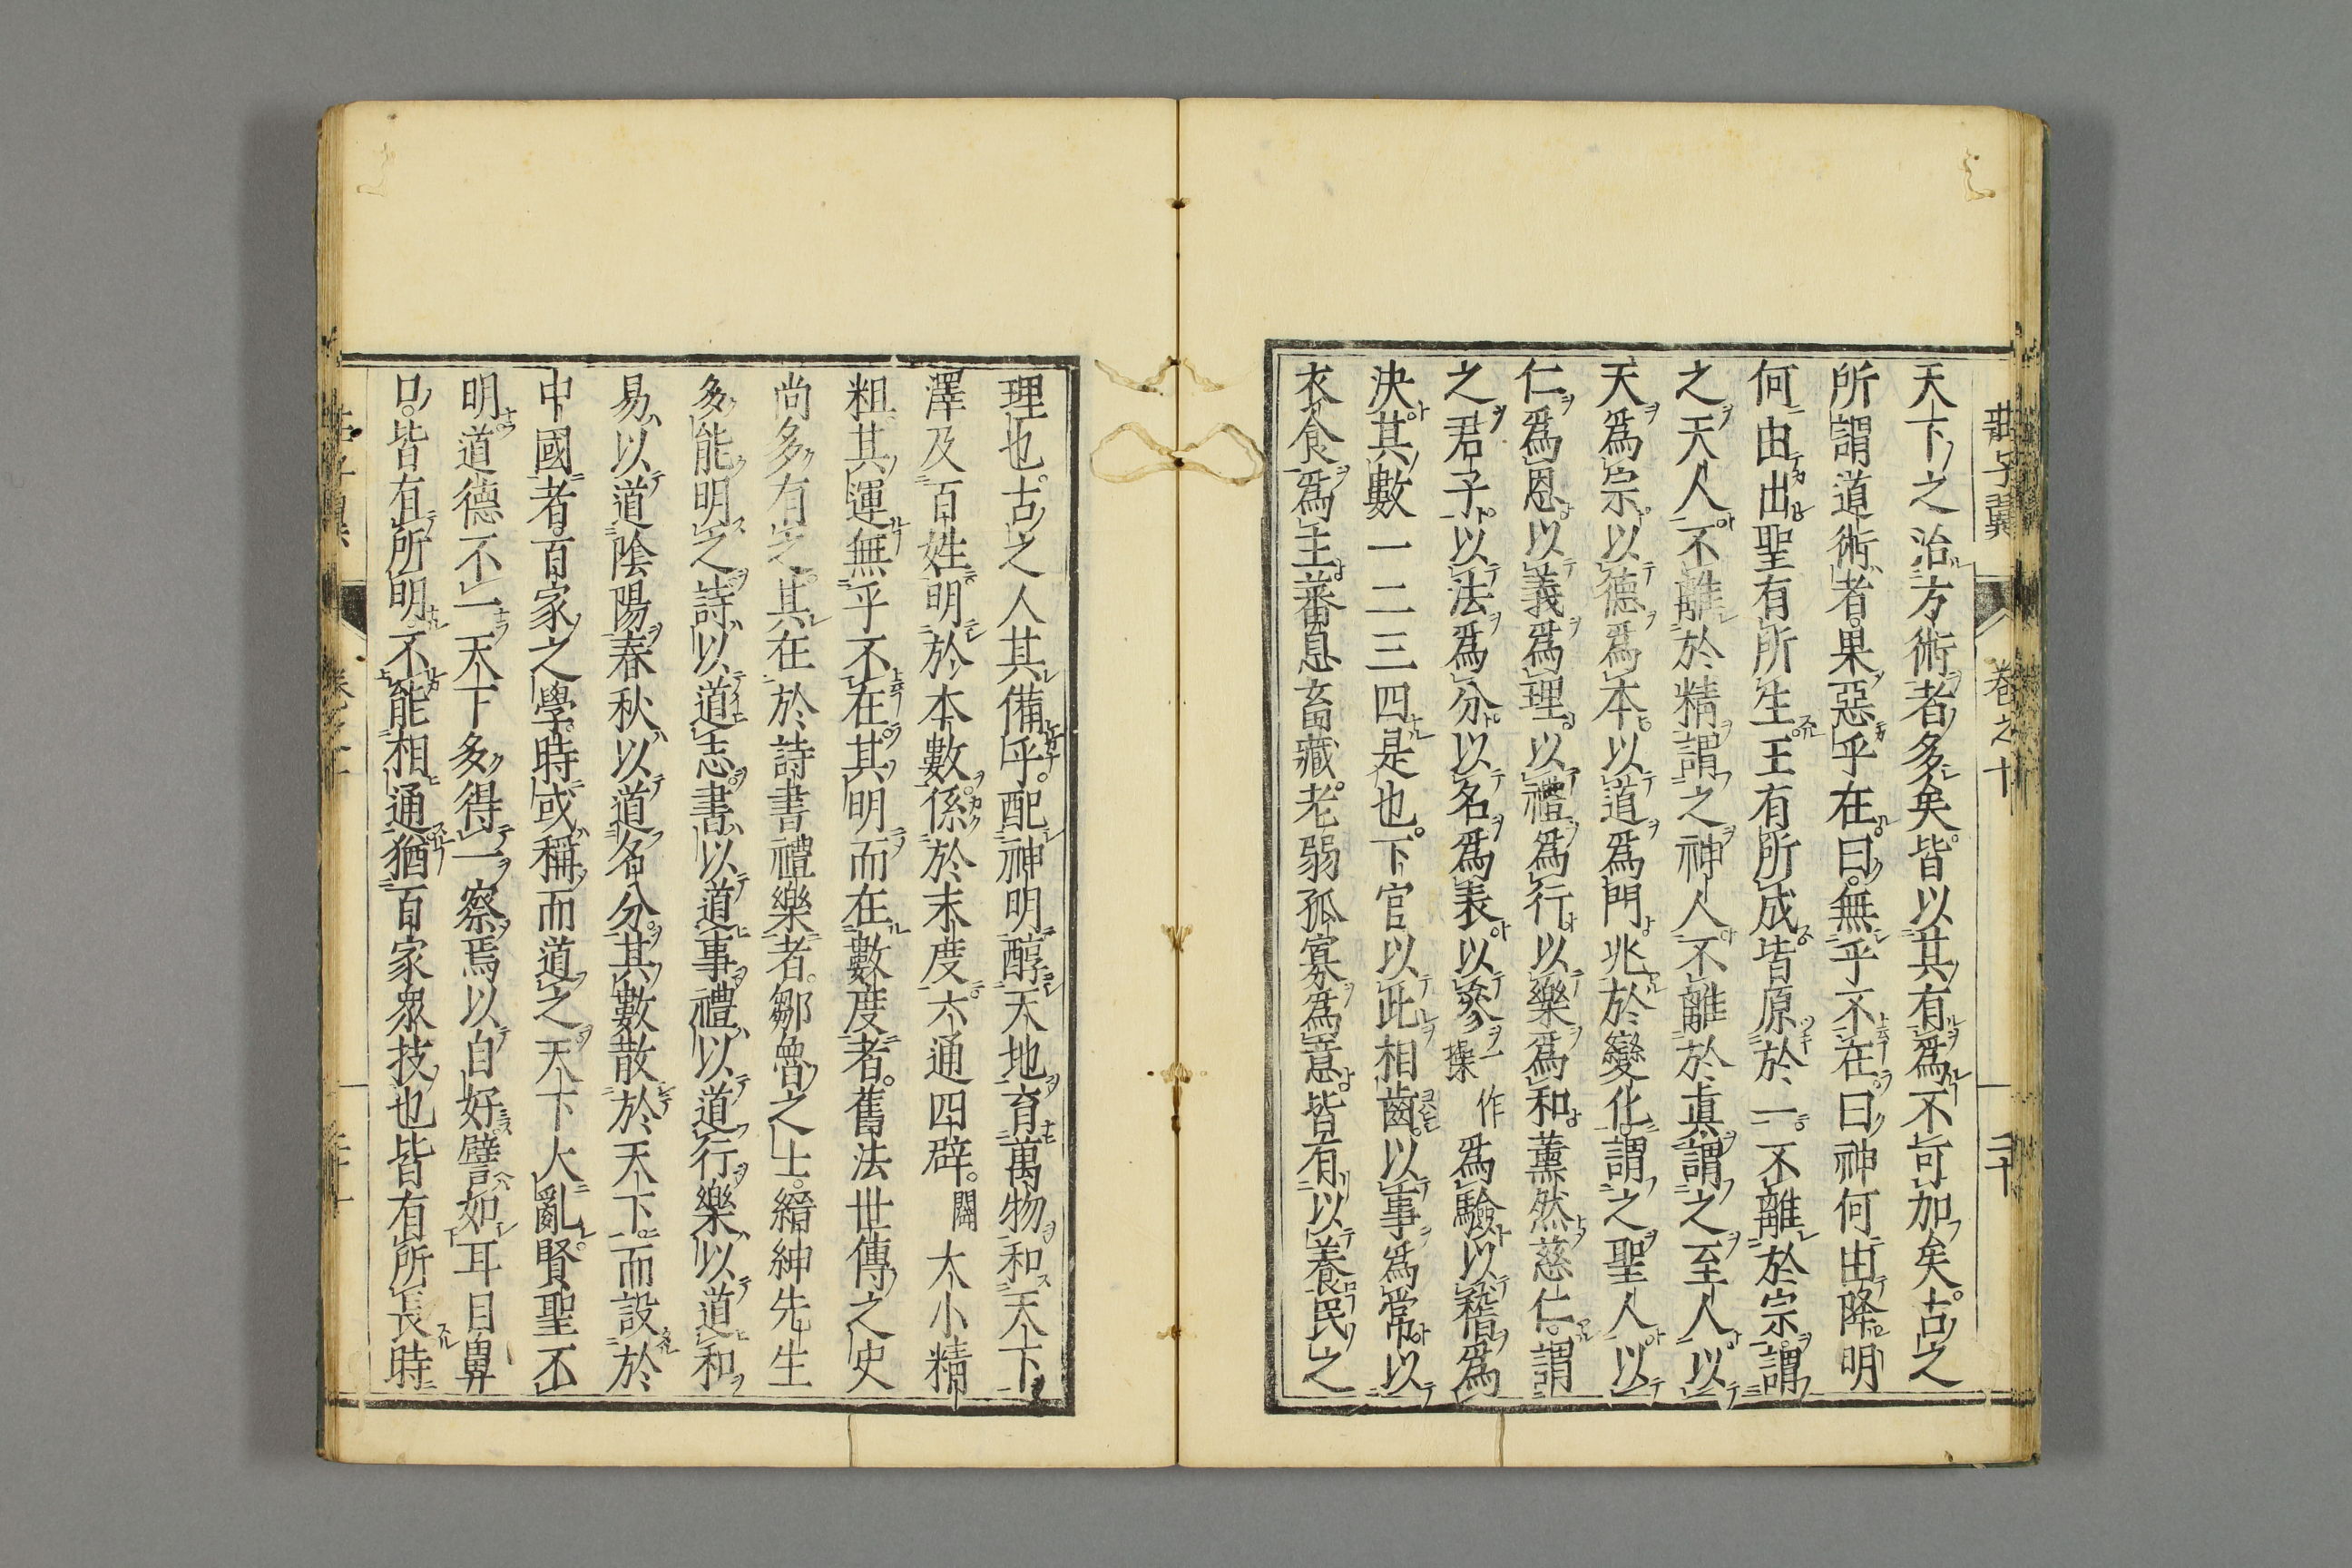 莊子翼 卷之十 三十
天下之治方術者多矣皆以其有爲不可加矣古之
所謂道術者果惡乎在曰無乎不在曰神何由降明
何由出聖有所生王有所成皆原於一不離於宗謂
之天人不離於精謂之神人不離於眞謂之至人以
天爲宗以德爲本以道爲門兆於變化謂之聖人以
仁爲恩以義爲理以禮爲行以樂爲和薰然慈仁謂
之君子以法爲分以名爲表以參一作操爲驗以稽爲
決其數一二三四是也下官以此相齒以事爲常以
衣食爲主蕃息畜藏老弱孤寡爲意皆有以養民之
理也古之人其備乎配神明醇天地育萬物和天下
澤及百姓明於本數係於末度六通四辟闢大小精
粗其運無乎不在其明而在數度者舊法世傳之史
尚多有之其在於詩書禮樂者鄒魯之士縉紳先生
多能明之詩以道志書以道事禮以道行樂以道和
易以道陰陽春秋以道名分其數散於天下而設於
中國者百家之學時或稱而道之天下大亂賢聖不
明道德不一天下多得一察焉以自好譬如耳目鼻
口皆有所明不能相通猶百家衆技也皆有所長時